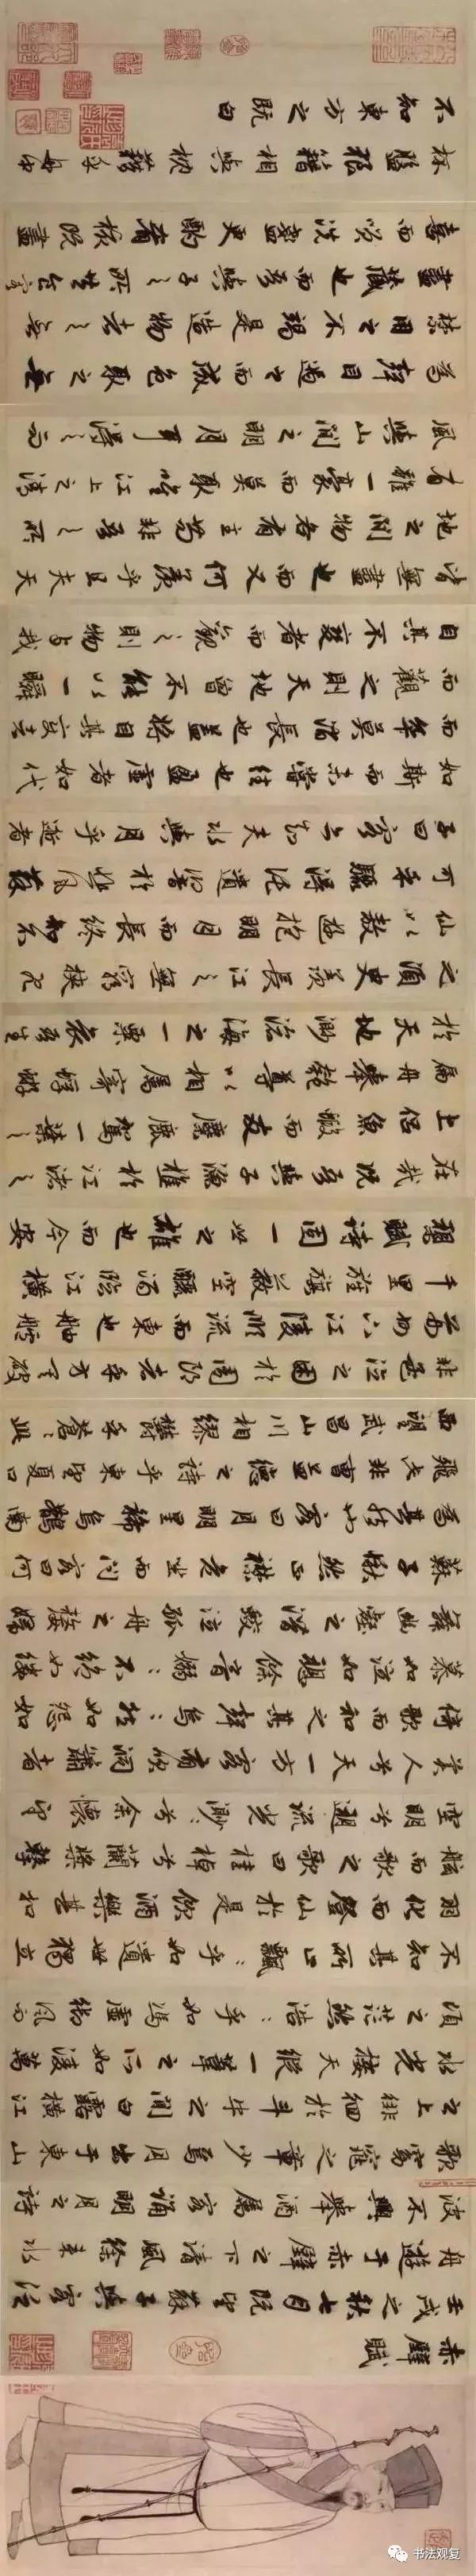 赤壁賦
壬戌之秋七月既望蘇子與客泛
舟遊于赤壁之下清風徐來水
波不興舉酒屬客誦明月之詩
歌窈窕之章少焉月出于東山
之上徘徊於斗牛之間白露橫江
水光接天縱一葦之所如凌萬
頃之茫然浩浩乎如馮虛御風而
不知其所止飄飄乎如遺世獨立
羽化而登仙於是飲酒樂甚扣
舷而歌之歌曰桂棹兮蘭槳擊
空明兮遡流光渺渺兮余懷望
美人兮天一方客有吹洞簫者
倚歌而和之其聲烏烏然如怨如
慕如泣如訴餘音嫋嫋不絕如縷
舞幽壑之潛蛟泣孤舟之嫠婦
蘇子愀然正襟危坐而問客曰何
為其然也客曰月明星稀烏鵲南
飛此非曹孟德之詩乎東望夏口
西望武昌山川相繆鬱乎蒼蒼此
非孟德之困於周郎者乎方其破
荊州下江陵順流而東也舳艫
千里旌旗蔽空釃酒臨江橫
槊賦詩固一世之雄也而今安
在哉況吾與子漁樵於江渚之
上侶魚蝦而友麋鹿駕一葉之
扁舟舉匏尊以相屬寄蜉蝣
於天地渺滄海之一粟哀吾生
之須臾羨長江之無窮挾飛
仙以遨遊抱明月而長終知不
可乎驟得託遺響於悲風蘇
子曰客亦知夫水與月乎逝者
如斯而未嘗往也盈虛者如代
而卒莫消長也蓋將自其變者
而觀之則天地曾不能以一瞬
自其不變者而觀之則物與我
皆無盡也而又何羨乎且夫天
地之間物各有主苟非吾之所
有雖一毫而莫取惟江上之清
風與山間之明月耳得之而
為聲目遇之而成色取之無
禁用之不竭是造物者之無
盡藏也而吾與子之所共食客
喜而笑洗盞更酌肴核既盡
杯盤狼籍相與枕藉乎舟中
不知東方之既白
书法观复